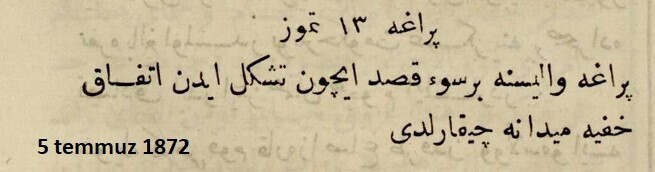 پراغه ١٣ تموز
پراغه واليسنه برسوء قصد ايچون تشكل ايدن اتفاق
خفيه ميدانه چيقارلدى
5 temmuz 1872